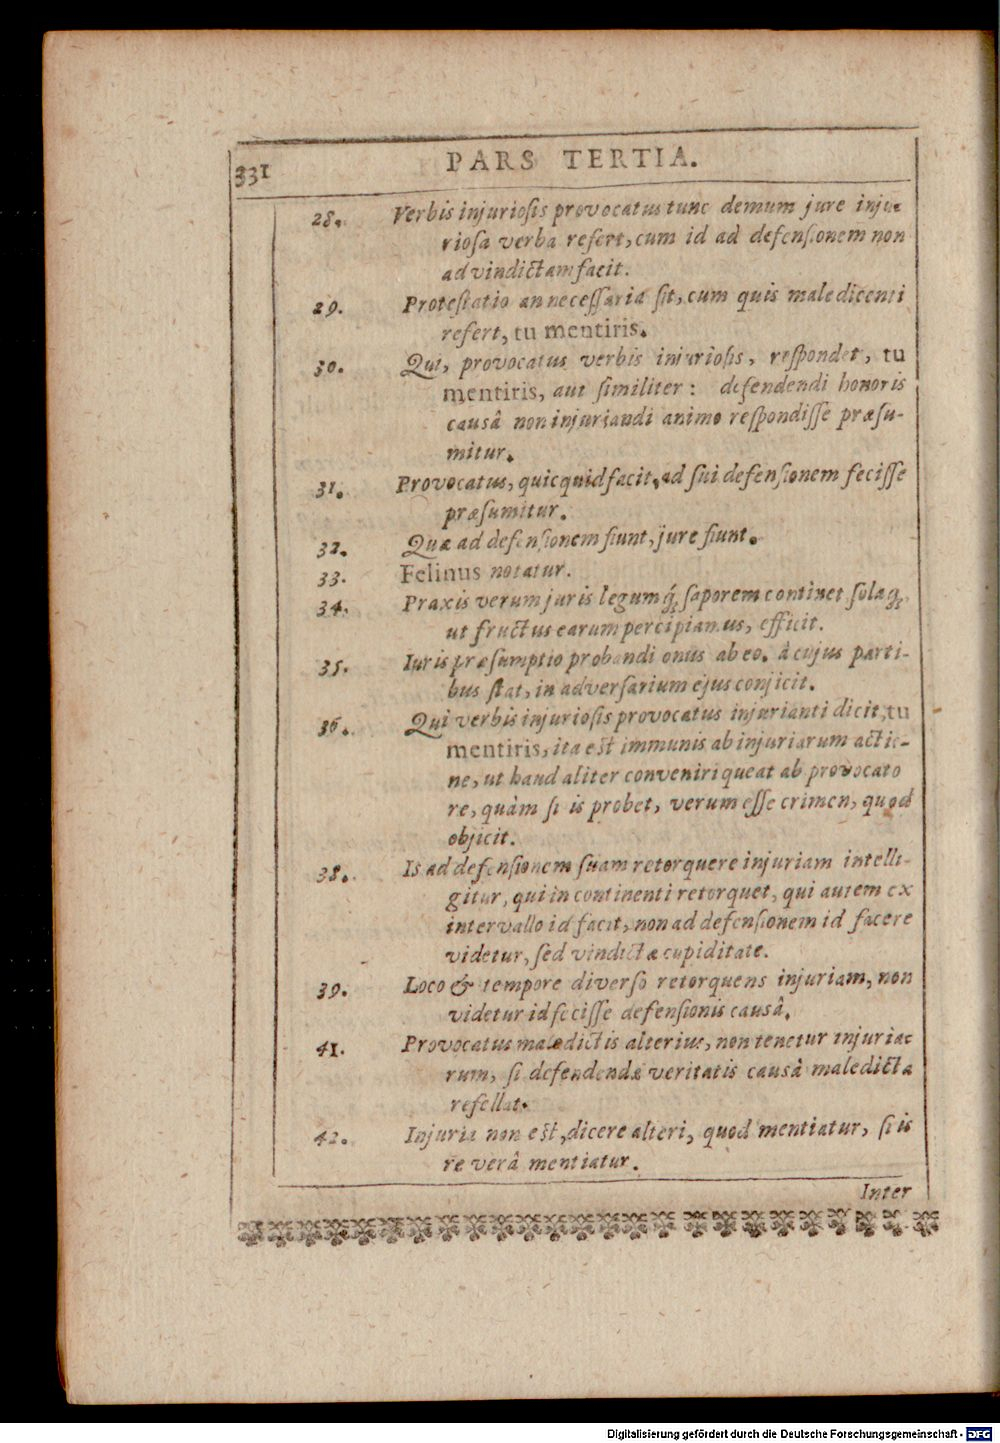 331 PARS TERTIA.
28. Verbis injuriosis provocatus tunc demum jure inju-
riosa verba refert, cum id ad defensionem non
ad vindictam facit.
29. Protestatio an necessaria sit, cum quis maledicenti
refert, tu mentiris.
30. Qui, provocatus verbis injuriosis, respondet, tu
mentiris, aut similiter: defendendi honoris
causâ non injuriandi animo respondisse præsu-
mitur.
31. Provocatus, quicquid facit, ad sui defensionem fecisse
præsumitur.
32. Quæ ad defensionem fiunt, jure fiunt.
33. Felinus notatur.
34. Praxis verum juris legumq́; saporem continet solaq;
ut fructus earum percipiamus, efficit.
35. Iuris præsumptio probandi onus ab eo, à cujus parti-
bus stat, in adversarium ejus conjicit.
36. Qui verbis injuriosis provocatus injurianti dicit, tu
mentiris, ita est immunis ab injuriarum actio-
ne, ut haud aliter conveniri queat ab provocato
re, quàm si is probet, verum esse crimen, quod
objicit.
38. Is ad defensionem suam retorquere injuriam intelli-
gitur, qui in continenti retorquet, qui autem ex
intervallo id facit, non ad defensionem id facere
videtur, sed vindictæ cupiditate.
39. Loco & tempore diverso retorquens injuriam, non
videtur id fecisse defensionis causâ.
41. Provocatus maledictis alterius, non tenetur injuria
rum, si defendendæ veritatis causâ maledicta
refellat.
42. Injuria non est, dicere alteri, quod mentiatur, si is
re verâ mentiatur.
Inter
Digitalisierung gefördert durch die Deutsche Forschungsgemeinschaft - DFG